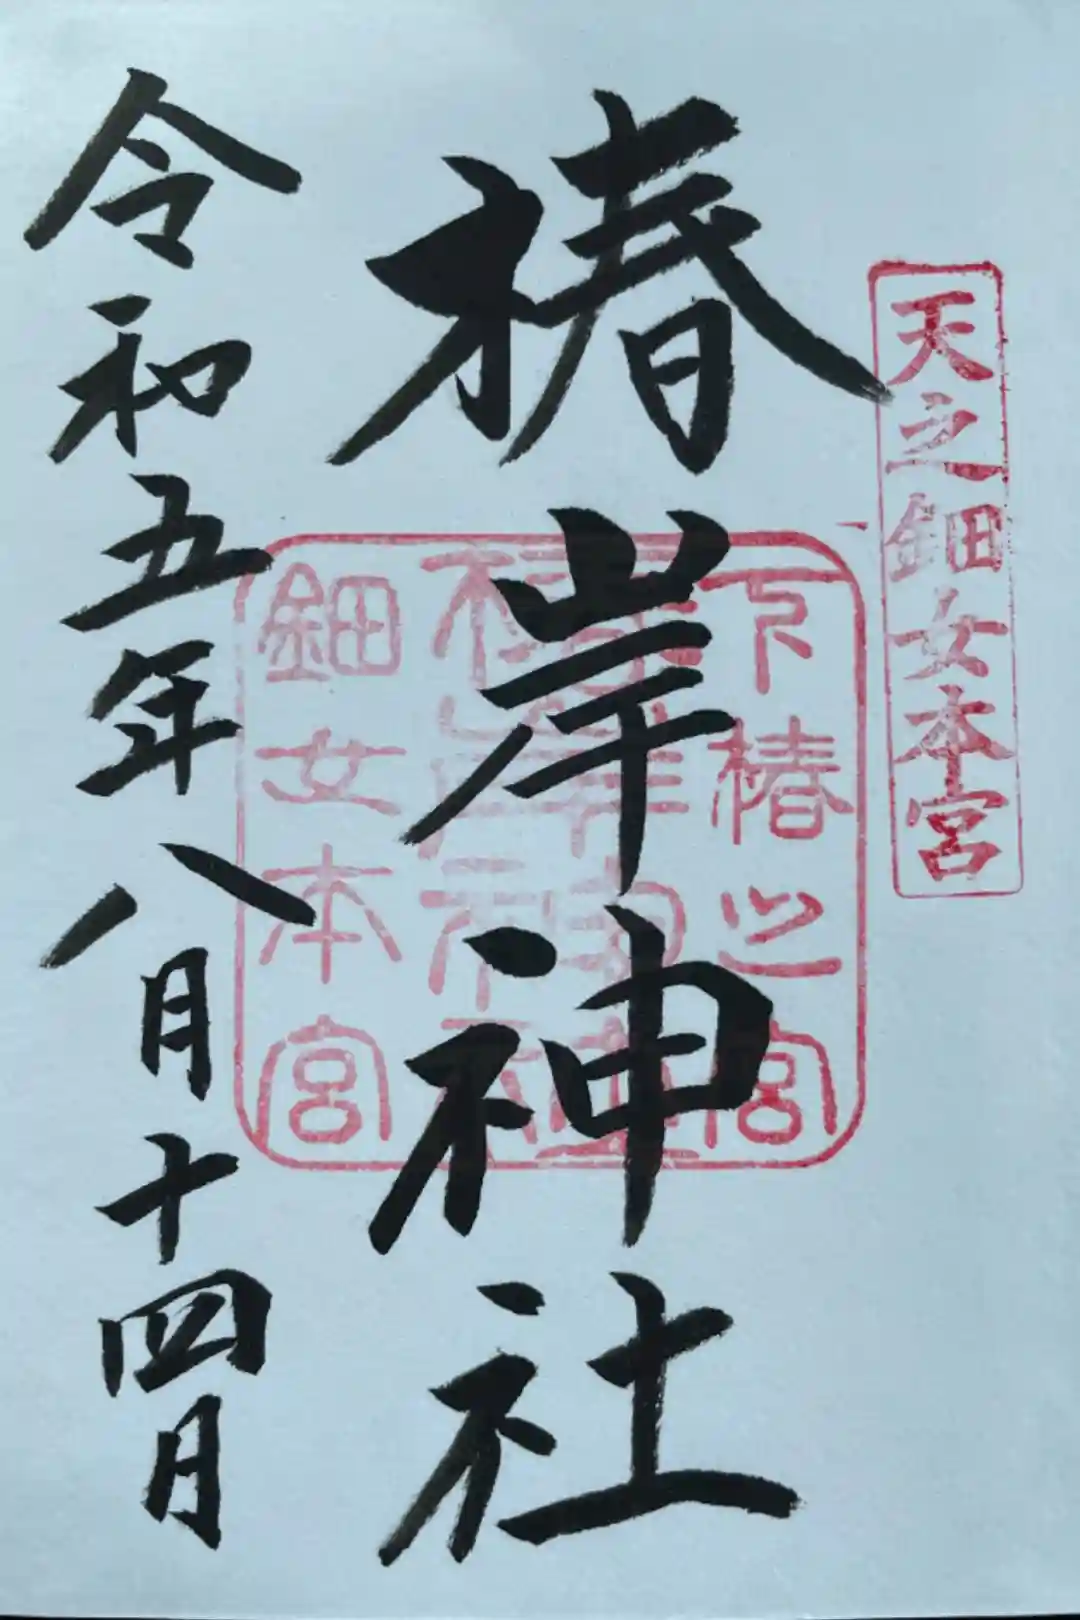 天之鈿女本宮
椿岸神社
下椿之宮
椿岸神社
鈿女本宮
令和五年八月十四日